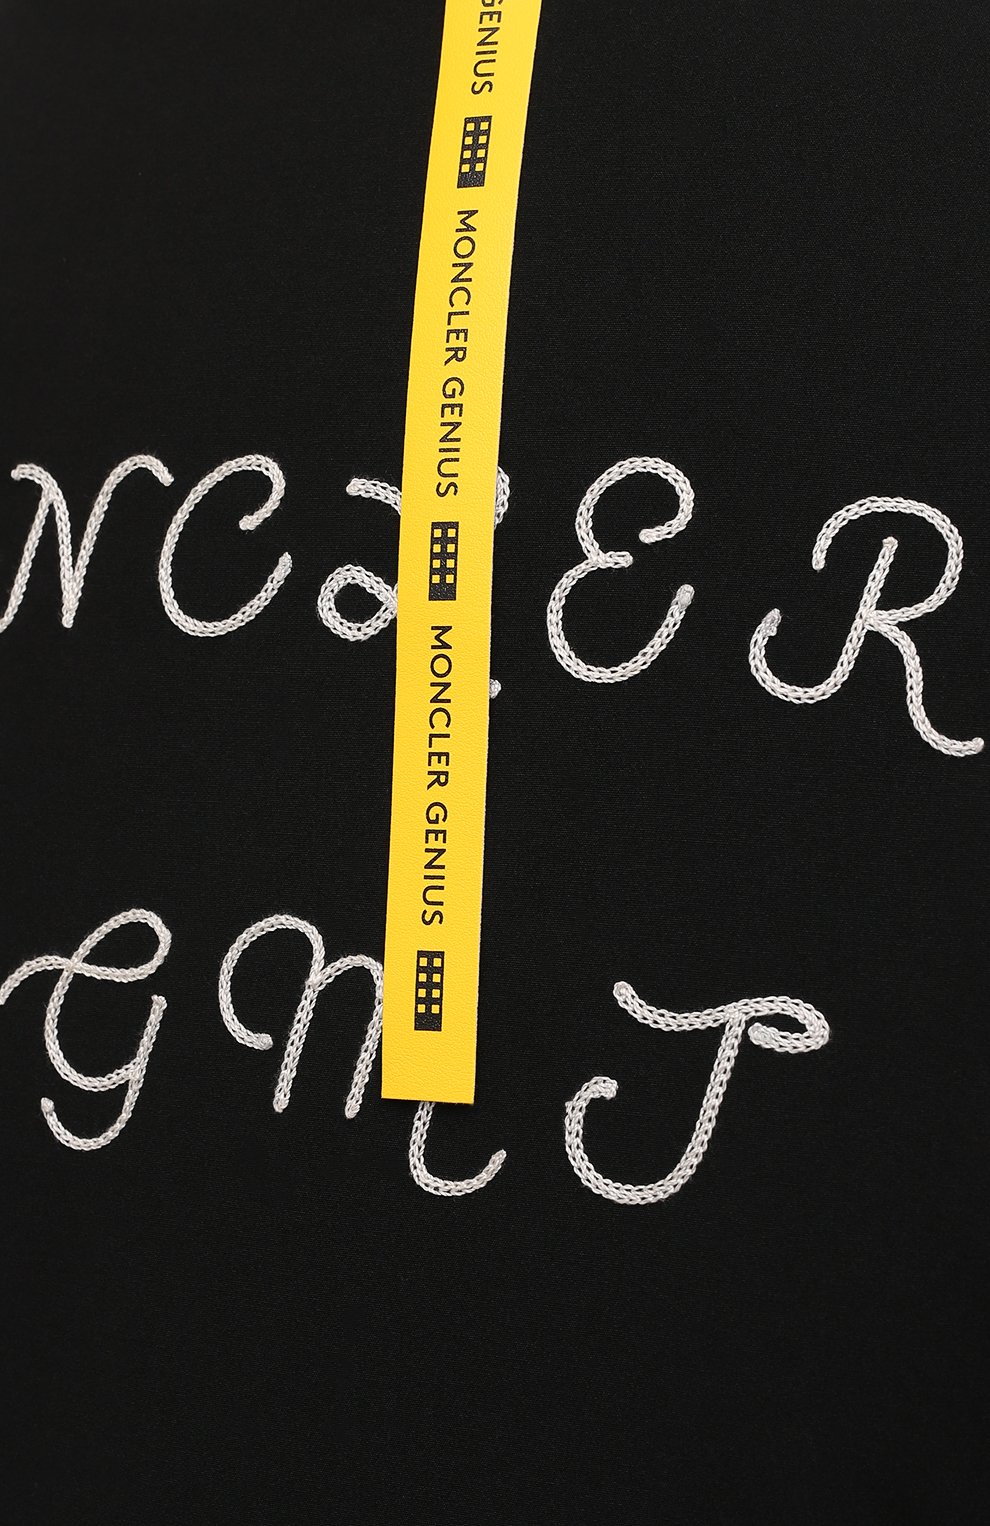 GENIUS
MONCLER GENIUS
MONCLER GENIUS
NCLER
GMT